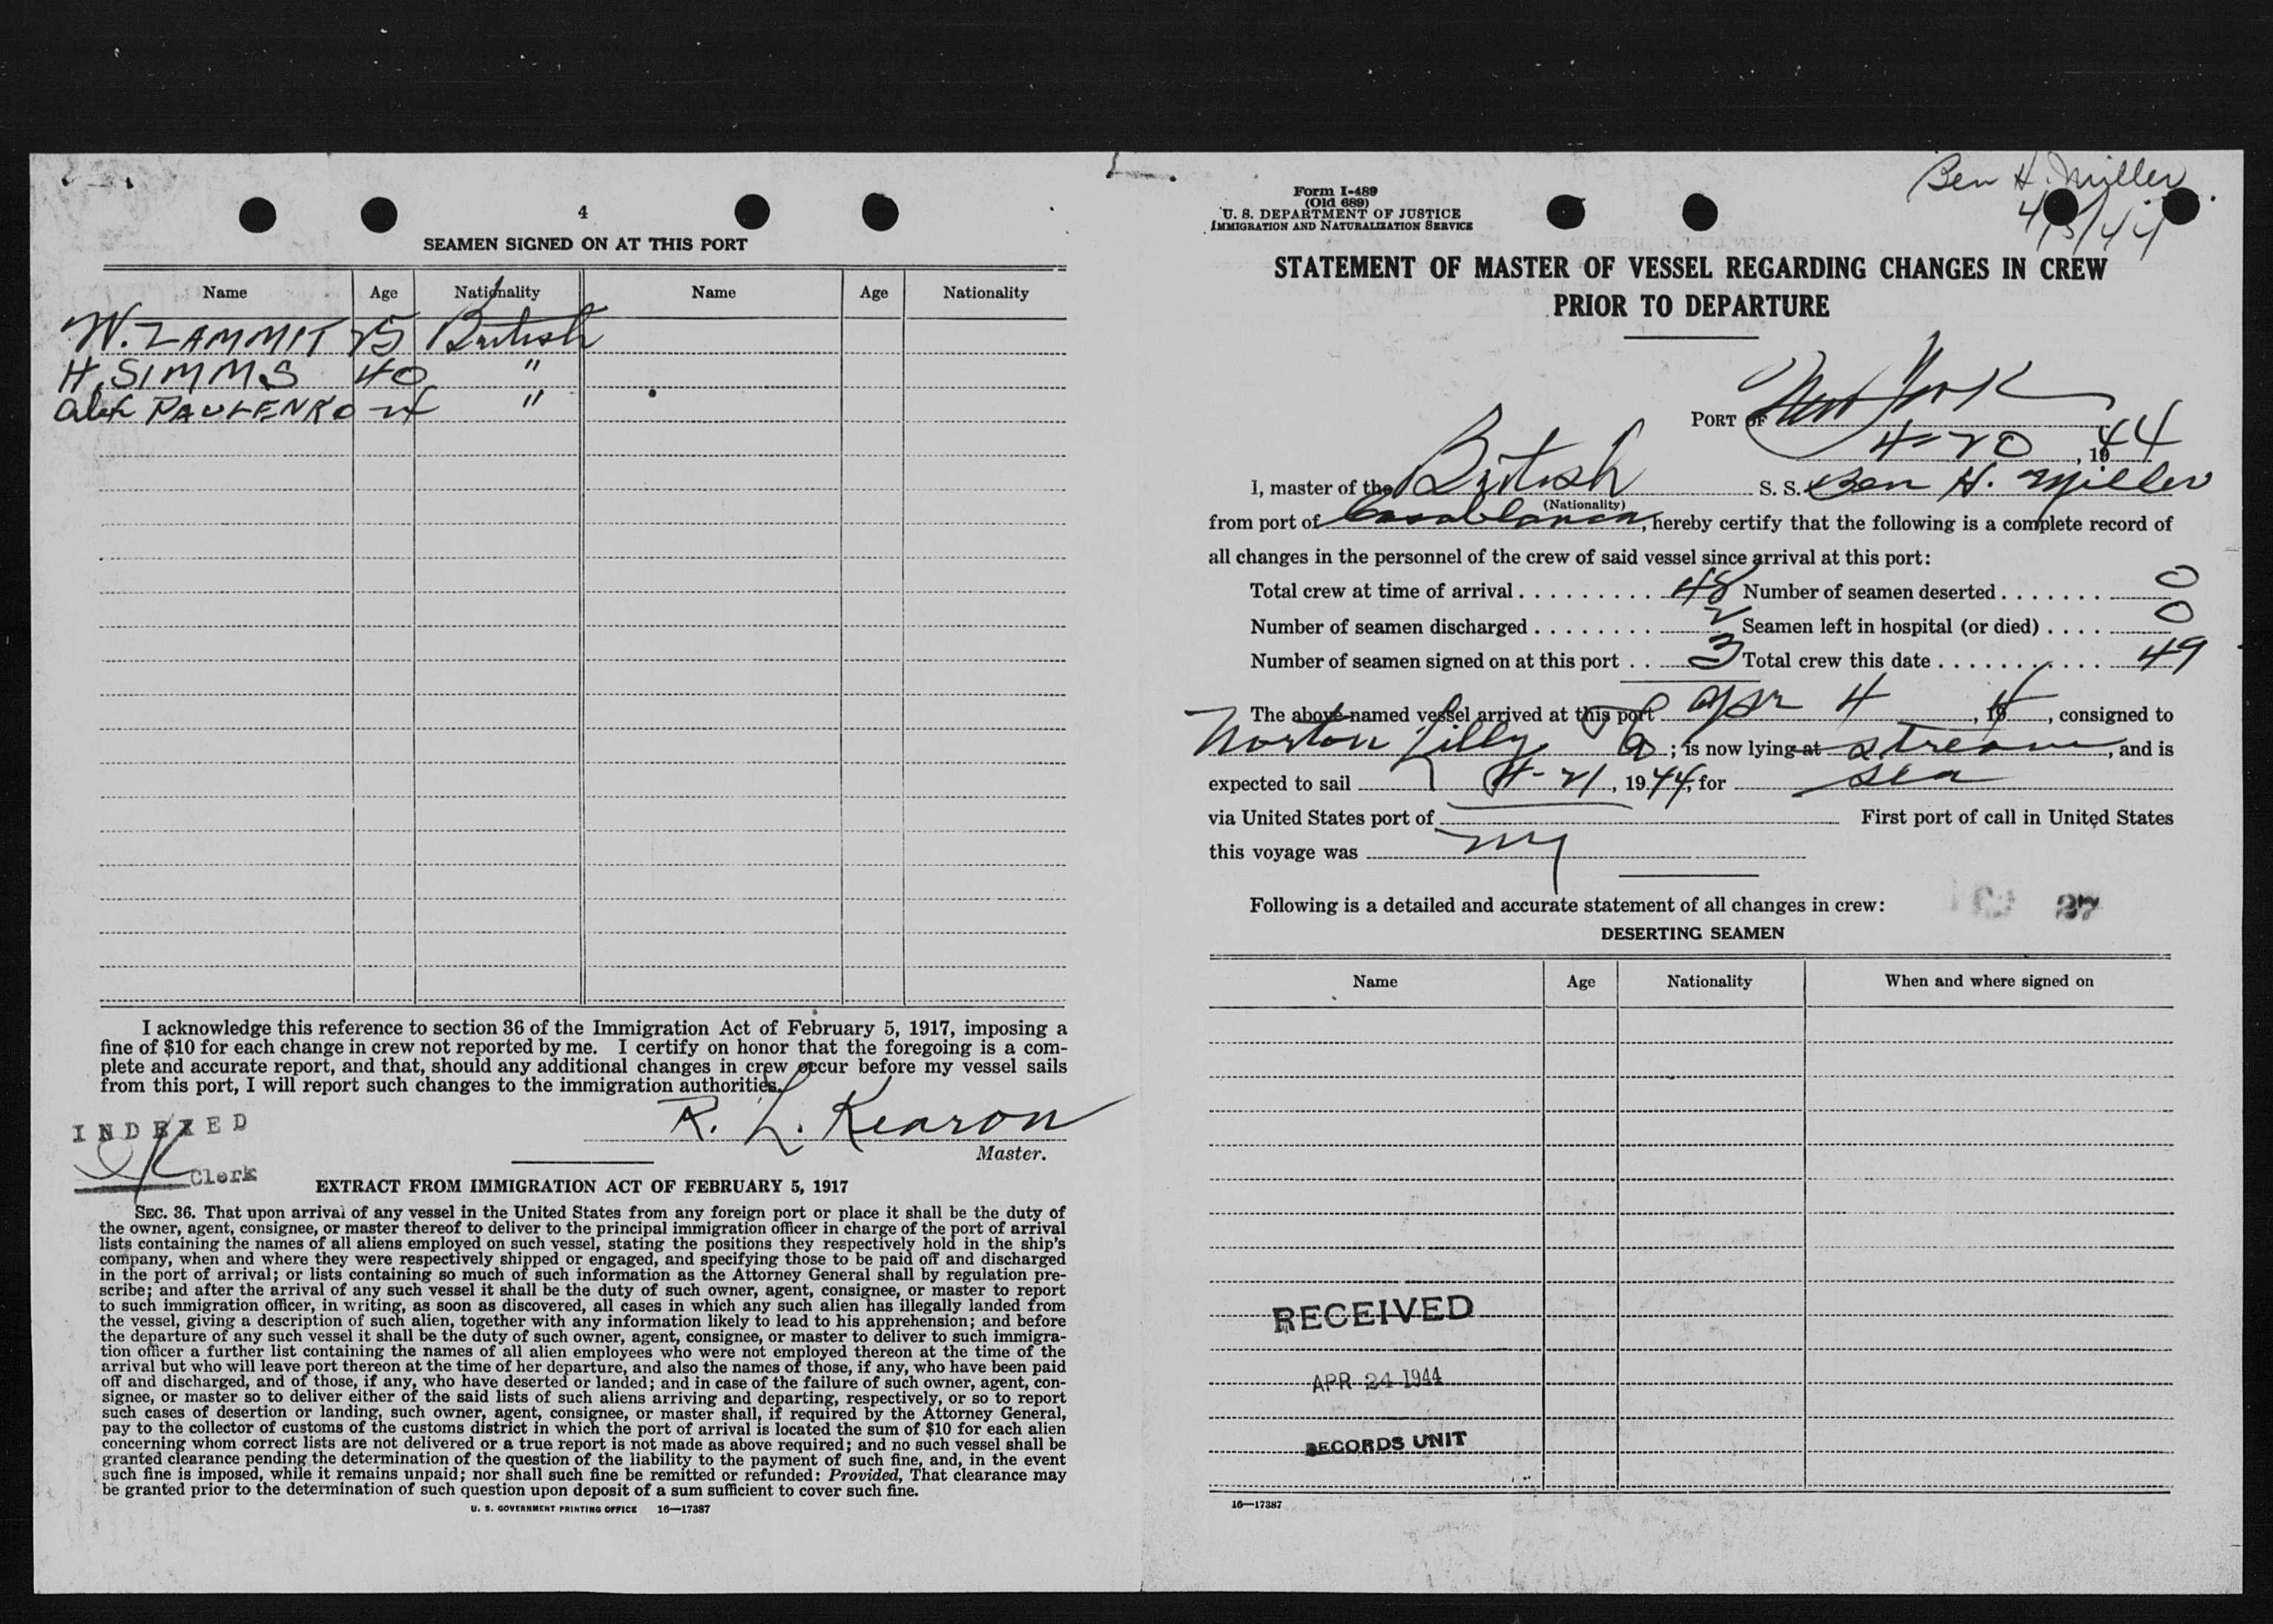 4
SEAMEN SIGNED ON AT THIS PORT
Name Age Nationality Name Age Nationality
W. ZAMMIT 25 British
H. SIMMS 40 "
Alex PAULENKO "
I acknowledge this reference to section 36 of the Immigration Act of February 5, 1917, imposing a
fine of $10 for each change in crew not reported by me. I certify on honor that the foregoing is a com-
plete and accurate report, and that, should any additional changes in crew occur before my vessel sails
from this port, I will report such changes to the immigration authorities.
R. L. Kearon
Master.
INDEXED
Clerk
EXTRACT FROM IMMIGRATION ACT OF FEBRUARY 5, 1917
SEC. 36. That upon arrival of any vessel in the United States from any foreign port or place it shall be the duty of
the owner, agent, consignee, or master thereof to deliver to the principal immigration officer in charge of the port of arrival
lists containing the names of all aliens employed on such vessel, stating the positions they respectively hold in the ship's
company, when and where they were respectively shipped or engaged, and specifying those to be paid off and discharged
in the port of arrival; or lists containing so much of such information as the Attorney General shall by regulation pre-
scribe; and after the arrival of any such vessel it shall be the duty of such owner, agent, consignee, or master to report
to such immigration officer, in writing, as soon as discovered, all cases in which any such alien has illegally landed from
the vessel, giving a description of such alien, together with any information likely to lead to his apprehension; and before
the departure of any such vessel it shall be the duty of such owner, agent, consignee, or master to deliver to such immigra-
tion officer a further list containing the names of all alien employees who were not employed thereon at the time of the
arrival but who will leave port thereon at the time of her departure, and also the names of those, if any, who have been paid
off and discharged, and of those, if any, who have deserted or landed; and in case of the failure of such owner, agent, con-
signee, or master so to deliver either of the said lists of such aliens arriving and departing, respectively, or so to report
such cases of desertion or landing, such owner, agent, consignee, or master shall, if required by the Attorney General,
pay to the collector of customs of the customs district in which the port of arrival is located the sum of $10 for each alien
concerning whom correct lists are not delivered or a true report is not made as above required; and no such vessel shall be
granted clearance pending the determination of the question of the liability to the payment of such fine, and, in the event
such fine is imposed, while it remains unpaid; nor shall such fine be remitted or refunded: Provided, That clearance may
be granted prior to the determination of such question upon deposit of a sum sufficient to cover such fine.
U. S. GOVERNMENT PRINTING OFFICE 16—17387
Ben H. Miller
Form I-489
(Old 689)
U. S. DEPARTMENT OF JUSTICE
IMMIGRATION AND NATURALIZATION SERVICE
STATEMENT OF MASTER OF VESSEL REGARDING CHANGES IN CREW
PRIOR TO DEPARTURE
PORT OF New York
4-20, 1944
I, master of the British S. S. Ben H. Miller
(Nationality)
from port of Casablanca, hereby certify that the following is a complete record of
all changes in the personnel of the crew of said vessel since arrival at this port:
Total crew at time of arrival 48 Number of seamen deserted 0
Number of seamen discharged 2 Seamen left in hospital (or died) 0
Number of seamen signed on at this port 3 Total crew this date 49
The above-named vessel arrived at this port Apr 4, 19, consigned to
Norton Lilly; is now lying at stream, and is
expected to sail 4-21, 1944, for Sea
via United States port of First port of call in United States
this voyage was NY
Following is a detailed and accurate statement of all changes in crew:
27
DESERTING SEAMEN
Name Age Nationality When and where signed on
RECEIVED
APR 24 1944
RECORDS UNIT
16—17387